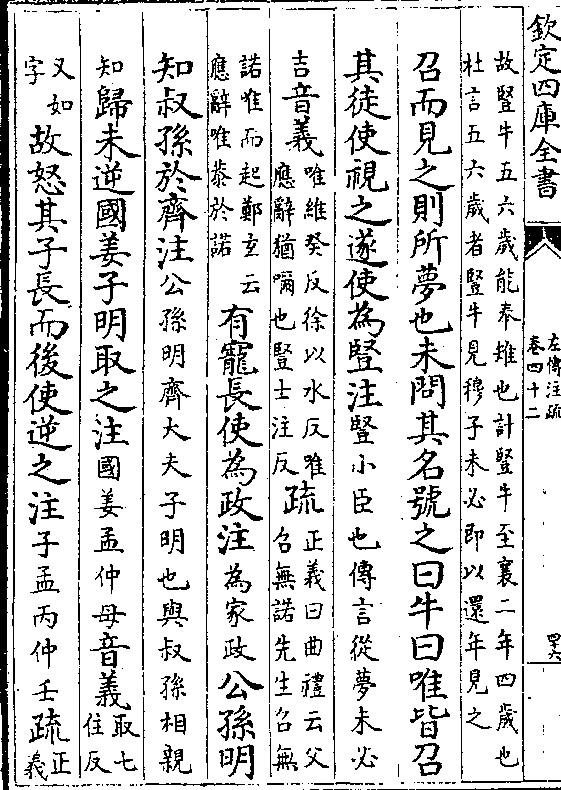 欽定四庫全書
左傳注疏
卷四十二
四六
故豎牛五六歲能奉雉也計豎牛至襄二年四歲也
杜言五六歲者豎牛見穆子未必即以還年見之
召而見之則所夢也未問其名號之曰牛曰唯皆召
其徒使視之遂使為豎注豎小臣也傳言從夢未必
吉音義唯維癸反徐以水反唯
應辭猶嗬也豎士注反疏正義曰曲禮云父
召無諾先生召無
諾唯而起鄭玄云
應辭唯恭於諾有寵長使為政注為家政公孫明
知叔孫於齊注公孫明齊大夫子明也與叔孫相親
知歸未逆國姜子明取之注國姜孟仲母音義取七
住反
又如
字故怒其子長而後使逆之注子孟丙仲壬疏正
義